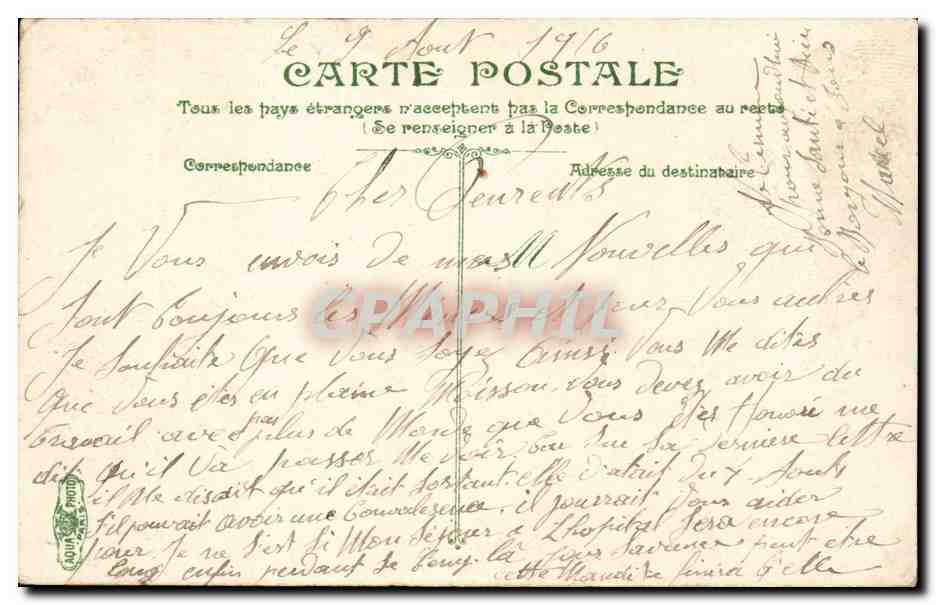 Le 9 Aout 1916
CARTE POSTALE
Tous les pays étrangers n'acceptent pas la Correspondance au recto
(Se renseigner à la Poste)
Correspondance
Adresse du destinataire
Cher Parents
Je Vous envois de mes Nouvelles qui
sont toujours les Mêmes et pour Vous autres
Je souhaite que Vous soyez Ainsi Vous Me dites
que Vous etes en plaine Moisson, vous devez avoir du
travail avec pas plus de Monde que Vous êtes Honoré me
dit qu'il Va passer Me Voir, Car sur sa derniere lettre
il Me disait qu'il était sortant elle datait du
s'il pouvait avoir une Convalescence, il pourrait Vous aider
pour, Je ne sais si Mon Séjour à L'hopital sera encore
long enfin pendant ce temps là Jours Savance peut etre
cette Maudite finira t'elle
pour aujourdhui
bonne Santé et bien
le Bonjour a tous
Marcel
AQUA PHOTO
PARIS
CPAPHIL